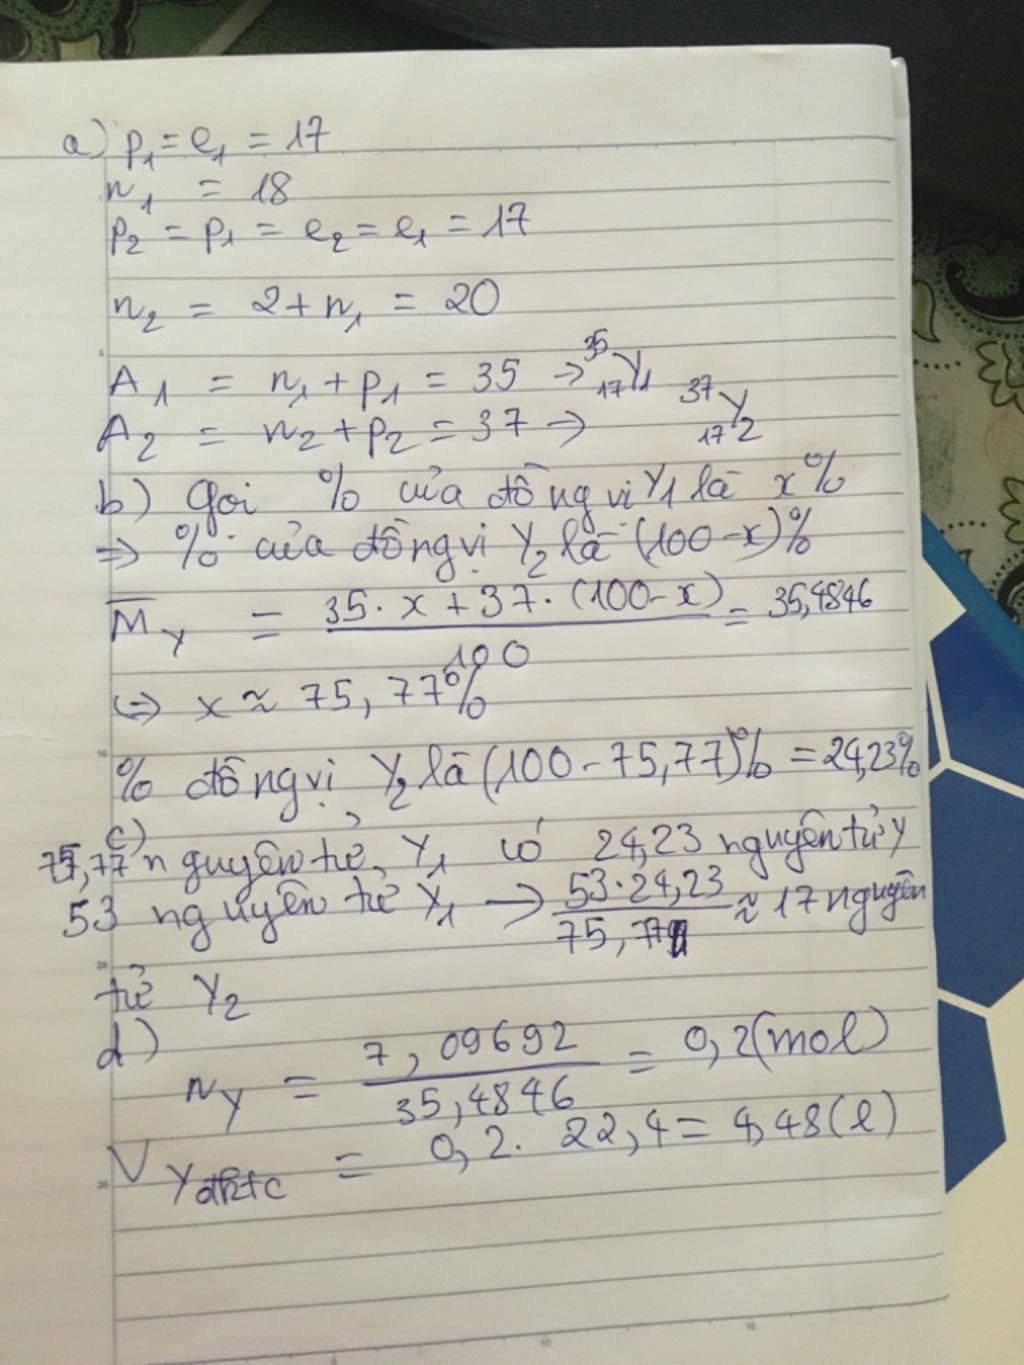 a) p₁ = e₁ = 17
n₁ = 18
p₂ = p₁ = e₂ = e₁ = 17
n₂ = 2 + n₁ = 20
A₁ = n₁ + p₁ = 35 → ³⁵₁₇Y₁
A₂ = n₂ + p₂ = 37 → ³⁷₁₇Y₂
b) Gọi % của đồng vị Y₁ là x%
⇒ % của đồng vị Y₂ là (100-x)%
M̅_Y = 35.x + 37.(100-x) / 100 = 35,4846
⇔ x ≈ 75,77%
% đồng vị Y₂ là (100-75,77)% = 24,23%
c)
75,77 nguyên tử Y₁ có 24,23 nguyên tử Y
53 nguyên tử Y₁ → 53.24,23 / 75,77 ≈ 17 nguyên
tử Y₂
d)
n_Y = 7,09692 / 35,4846 = 0,2 (mol)
V_Y đktc = 0,2. 22,4 = 4,48 (l)